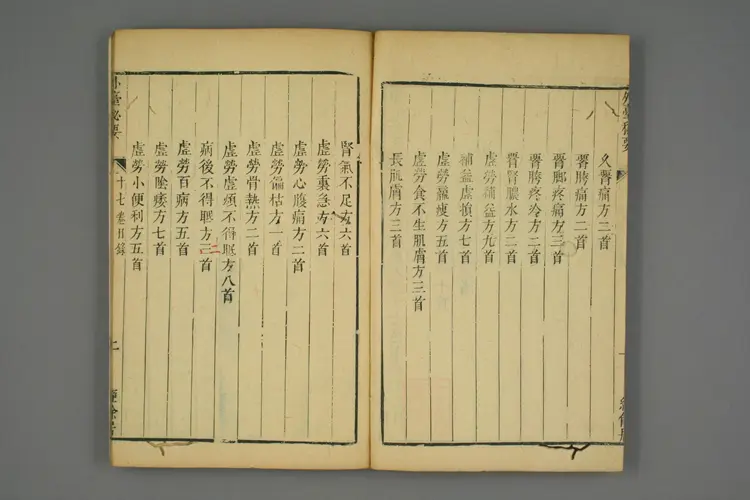 外臺秘要
久腰痛方二首
腰胯痛方一首
腰脚疼痛方三首
腰胯疼冷方二首
腰腎膿水方二首
虛勞補益方九首
補益虛損方七首
虛勞羸瘦方五首
虛勞食不生肌膚方三首
長肌膚方三首
腎氣不足方六首
虛勞裏急方六首
虛勞心腹痛方二首
虛勞偏枯方一首
虛勞骨熱方二首
虛勞虛煩不得眠方八首
病後不得眠方三首
二
虛勞百病方五首
虛勞陰痿方七首
虛勞小便利方五首
外臺秘要
十七卷目錄